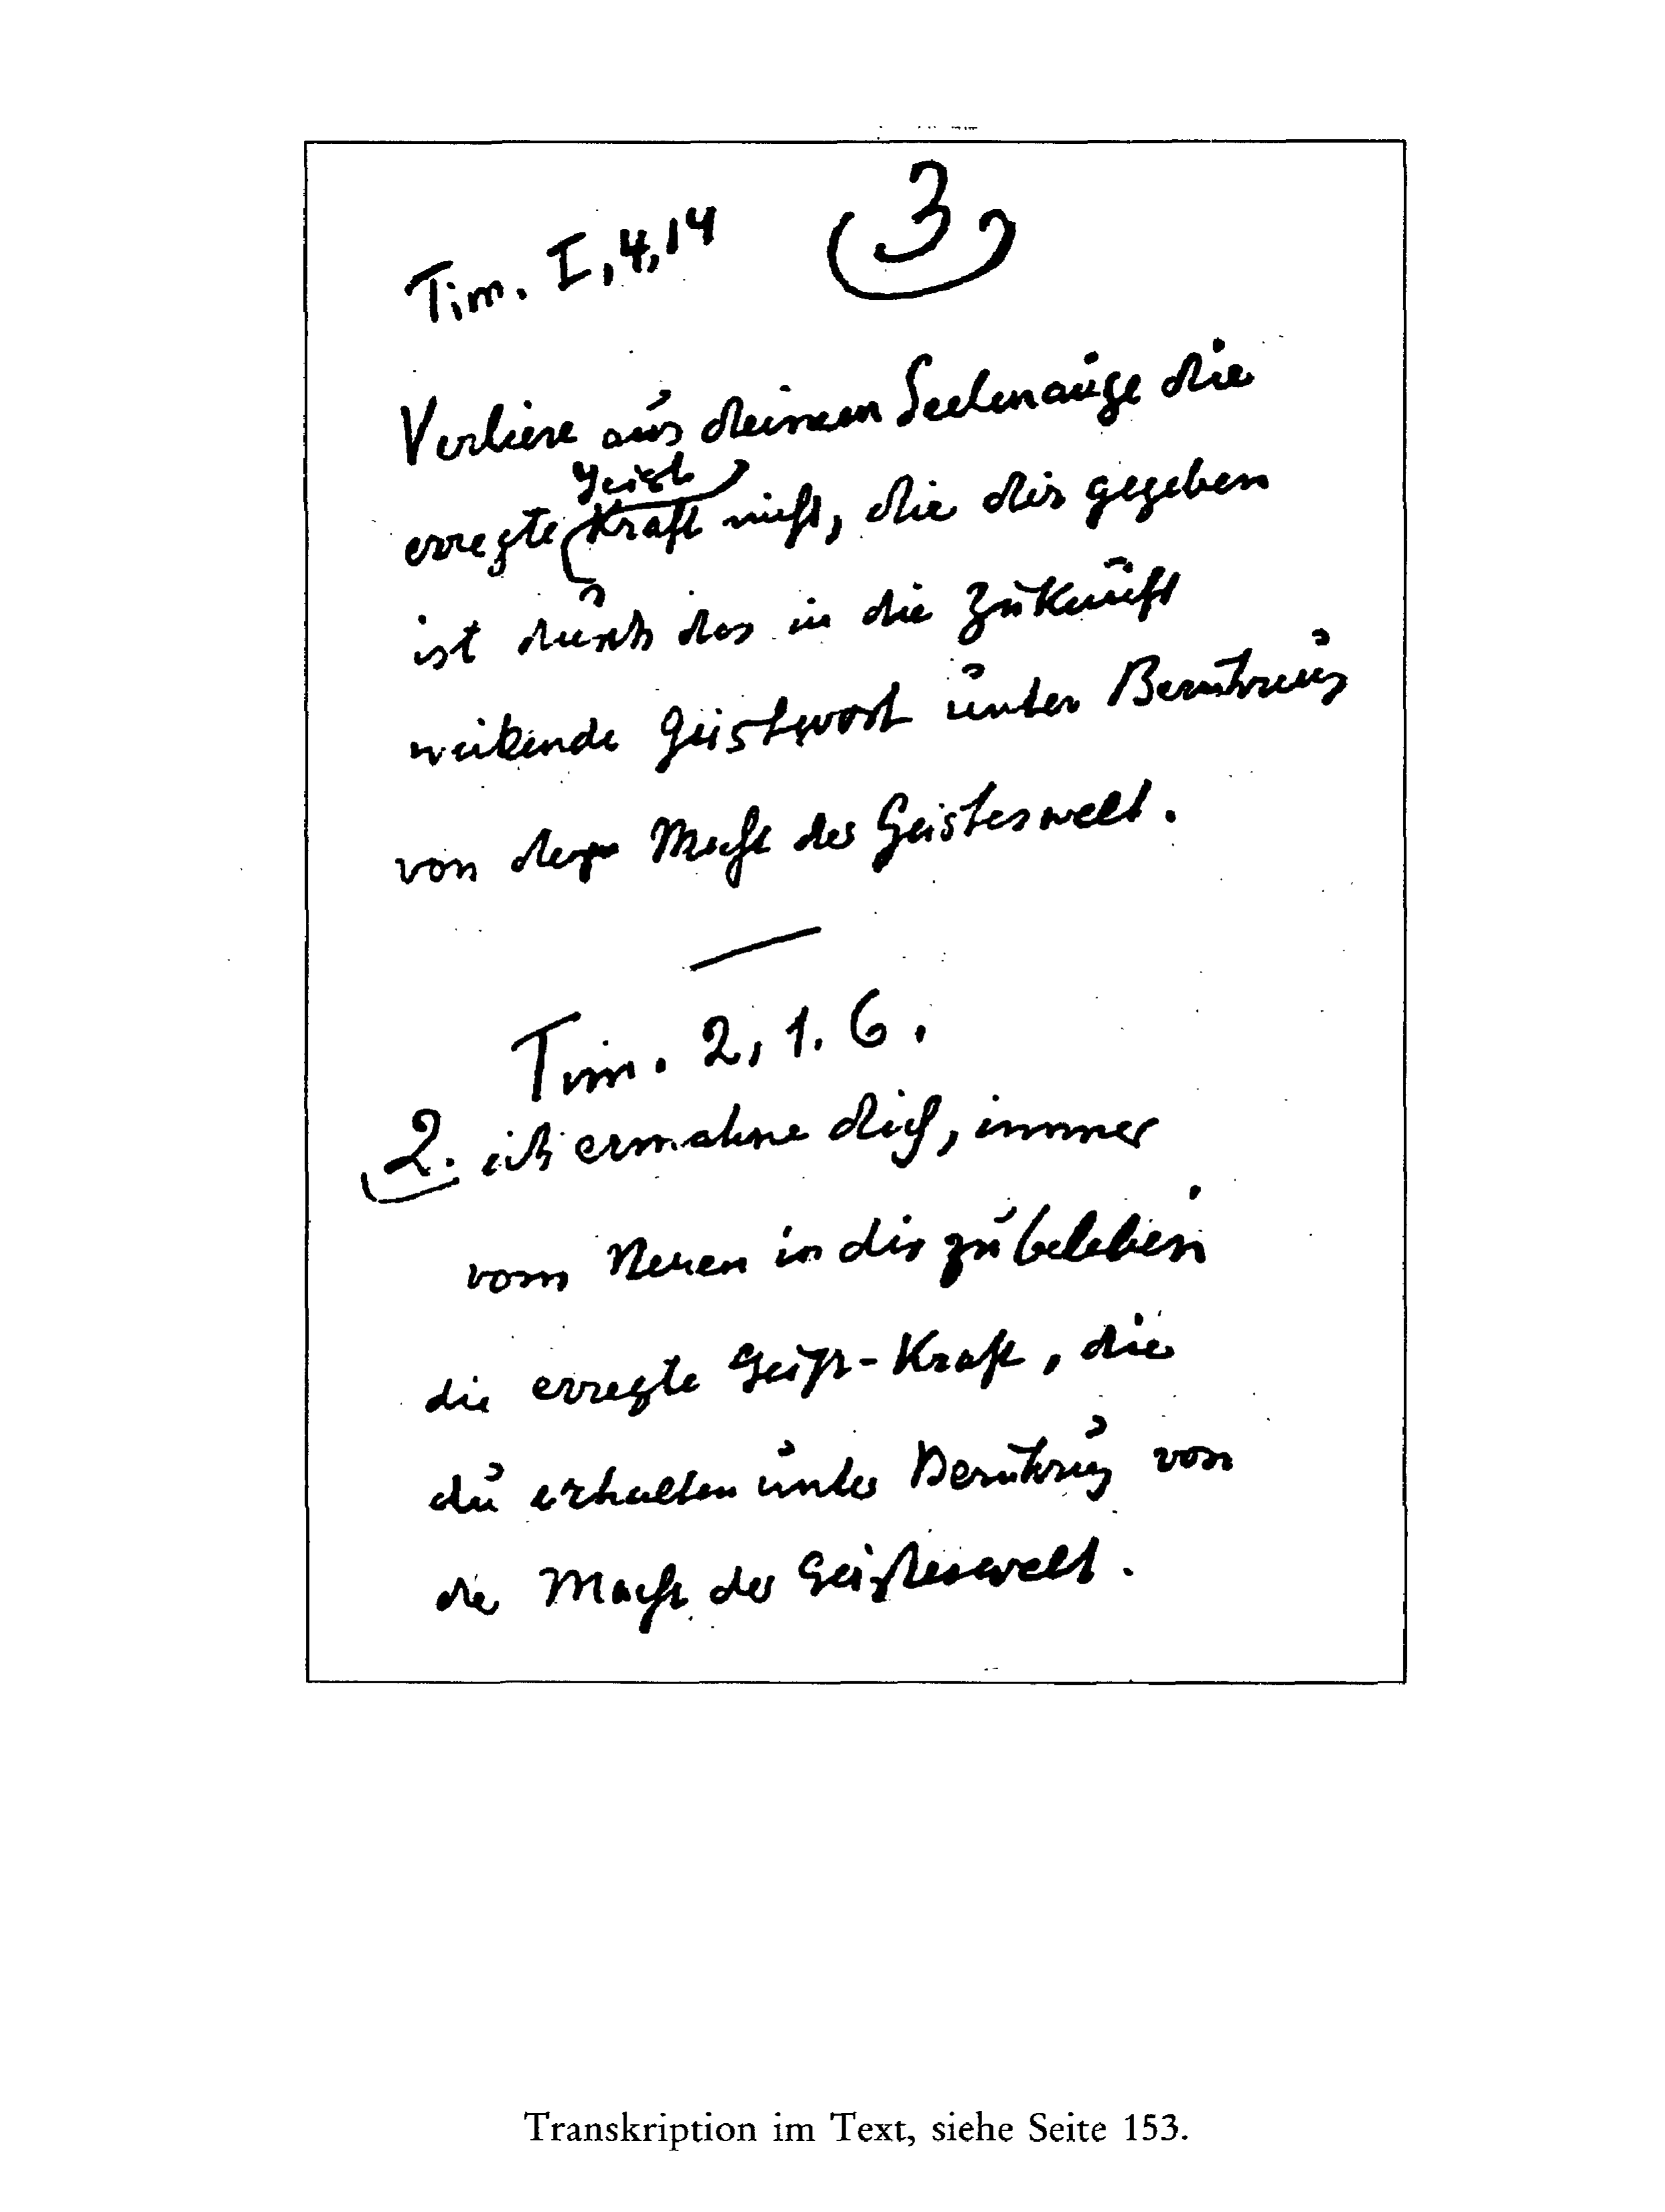 Tim. I, 4, 14 3
Verliere aus deinem Seelenauge die
Geist
erregte Kraft nicht, die dir gegeben
ist durch das in die Zukunft
weisende Geistwort unter Berührung
von der Macht der Geisteswelt.
Tim. 2, 1. 6.
2. ich ermahne dich, immer
vom Neuen in dir zu beleben
die erregte Geist-Kraft, die
du erhalten unter Berührung von
der Macht der Geisteswelt.
Transkription im Text, siehe Seite 153.